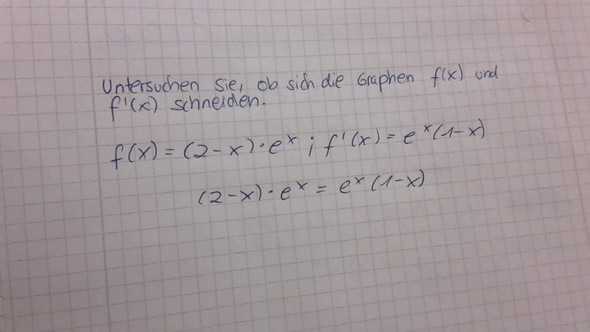 Untersuchen Sie, ob sich die Graphen f(x) und
f'(x) schneiden.
f(x) = (2-x)·eˣ ; f'(x) = eˣ(1-x)
(2-x)·eˣ = eˣ(1-x)